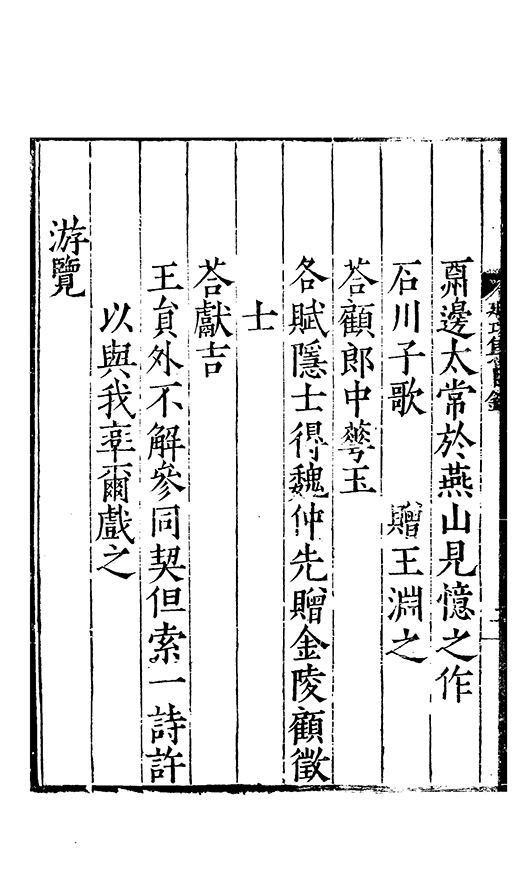 酬邊太常於燕山見憶之作
石川子歌 贈王淵之
荅顧郎中華玉
各賦隱士得魏仲先贈金陵顧徵
士
荅獻吉
王貟外不解參同契但索一詩許
以與我率爾戲之
游覽